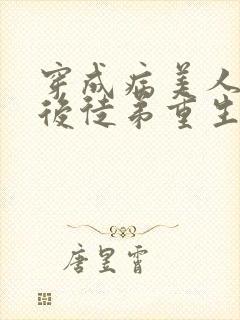 穿成病美人
後徒弟重生
唐昱霄